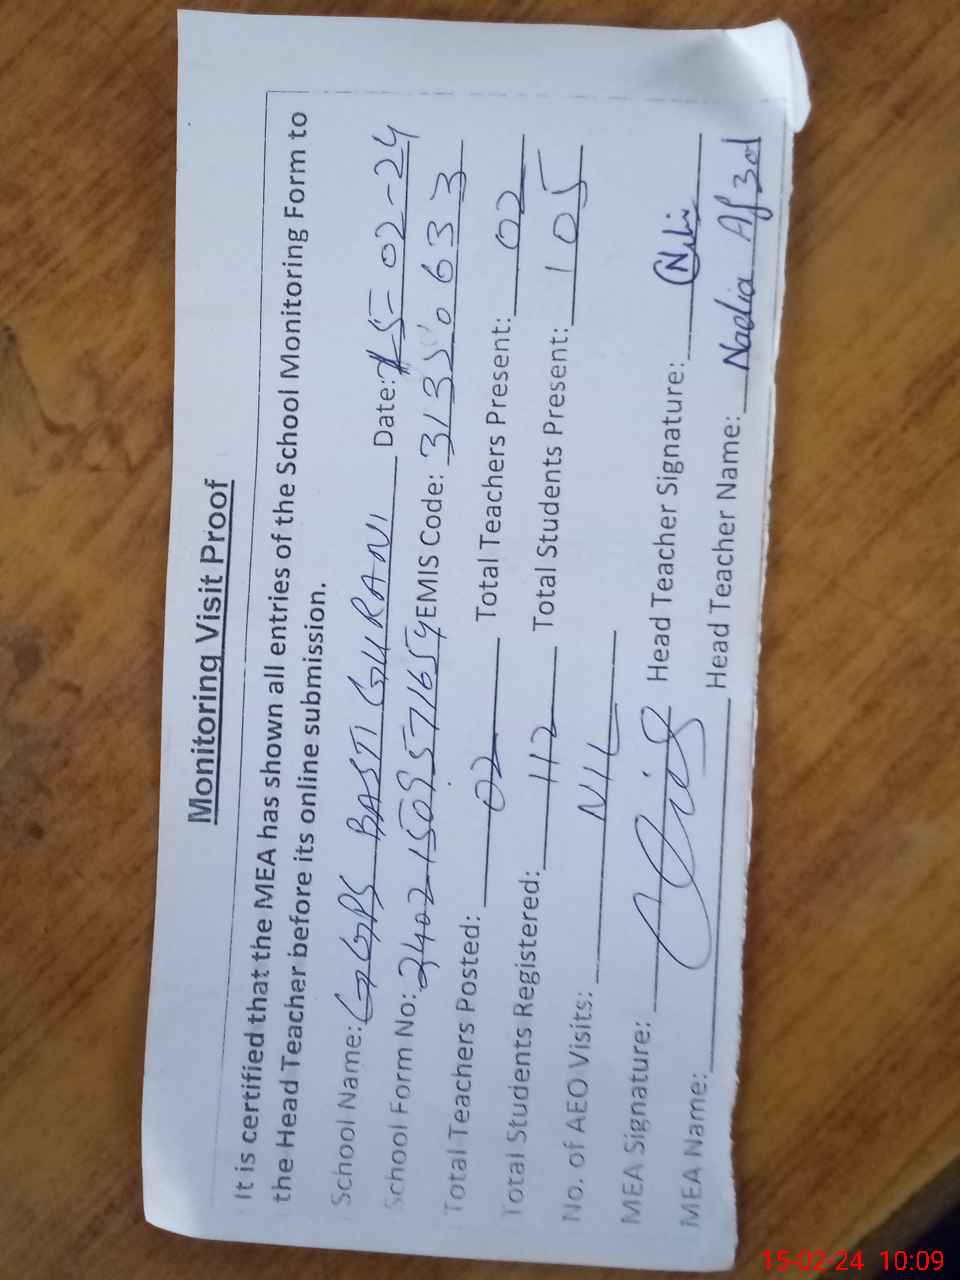 Monitoring Visit Proof
It is certified that the MEA has shown all entries of the School Monitoring Form to
the Head Teacher before its online submission.
School Name: GGPS BASTI GURANI Date: 15-02-24
School Form No: 2402150957165 EMIS Code: 31350633
Total Teachers Posted: 02 Total Teachers Present: 02
Total Students Registered: 112 Total Students Present: 105
No. of AEO Visits: NIL
MEA Signature: Head Teacher Signature:
MEA Name: Head Teacher Name: Nadia Afzal
15-02-24 10:09